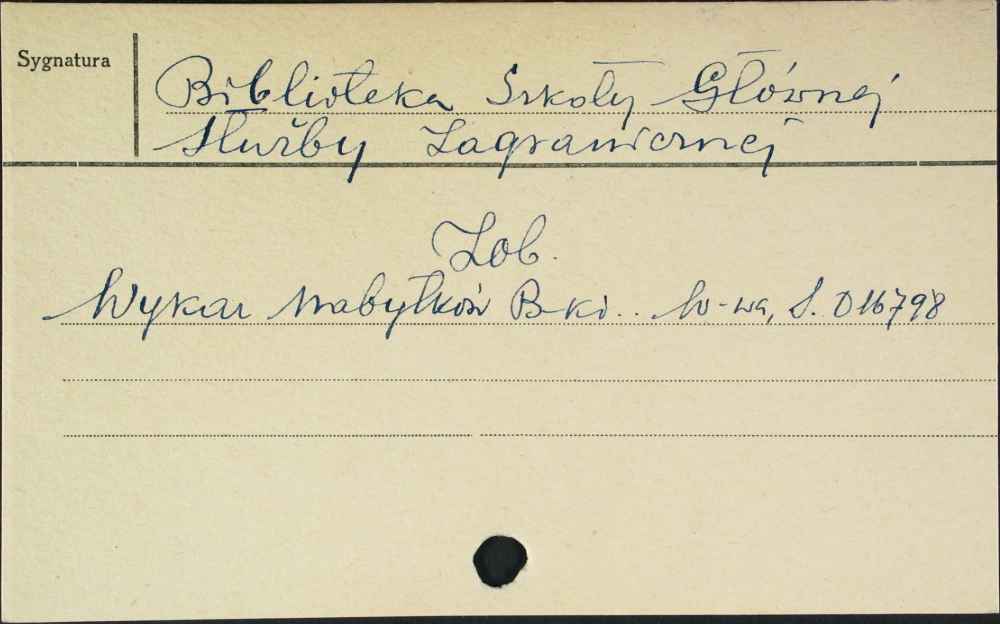 Sygnatura
Biblioteka Szkoły Głównej
Służby Zagranicznej
Zob.
Wykaz Nabytków B-ki .. W-wa, S. D 16798